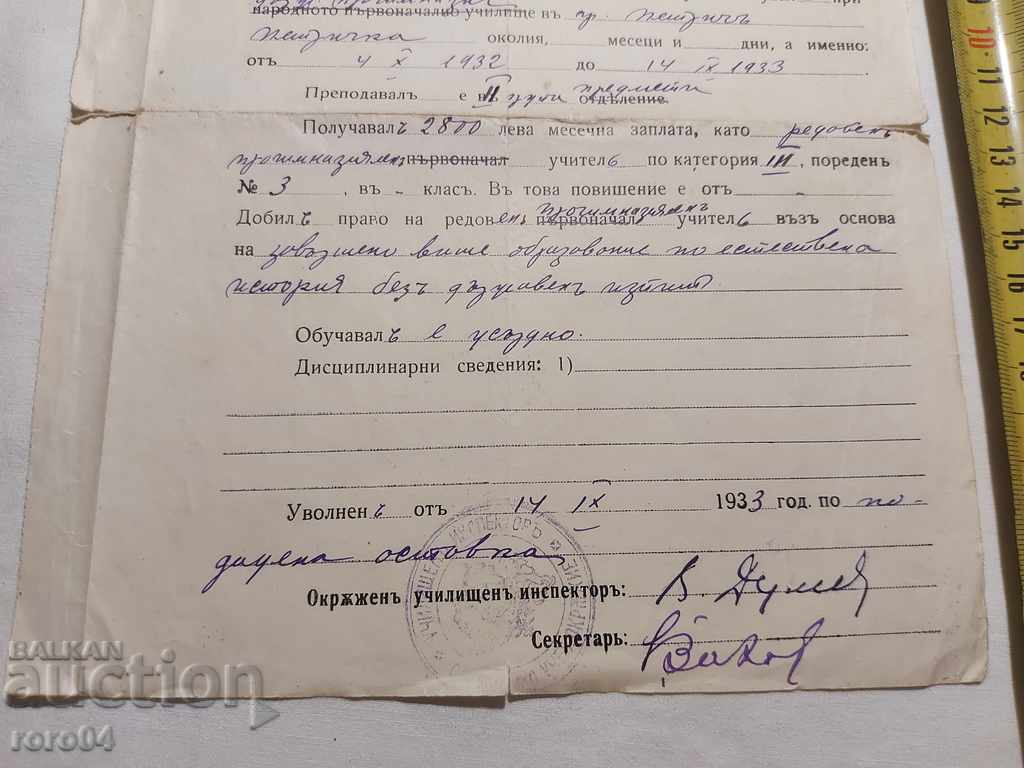 народното първоначално училище въ гр. Петричъ
Петричка околия, месеци и дни, а именно:
отъ 4 X 1932 до 14 IX 1933
Преподавалъ е въ II групи предмети отдѣление.
Получавалъ 2800 лева месечна заплата, като редовенъ
прогимназияленъ първоначал учитель по категория III, пореденъ
№ 3, въ - класъ. Въ това повишение е отъ -
Добилъ право на редовенъ прогимназияленъ първоначал учитель възъ основа
на завършено висше образование по естествена
история безъ държавенъ изпитъ.
Обучавалъ е усърдно.
Дисциплинарни сведения: 1)
Уволненъ отъ 14 IX 1933 год. по по-
дадена оставка
Окрѫженъ училищенъ инспекторъ:
Секретарь:
BALKAN
Auction
roro04
10
11
12
13
14
15
16
17